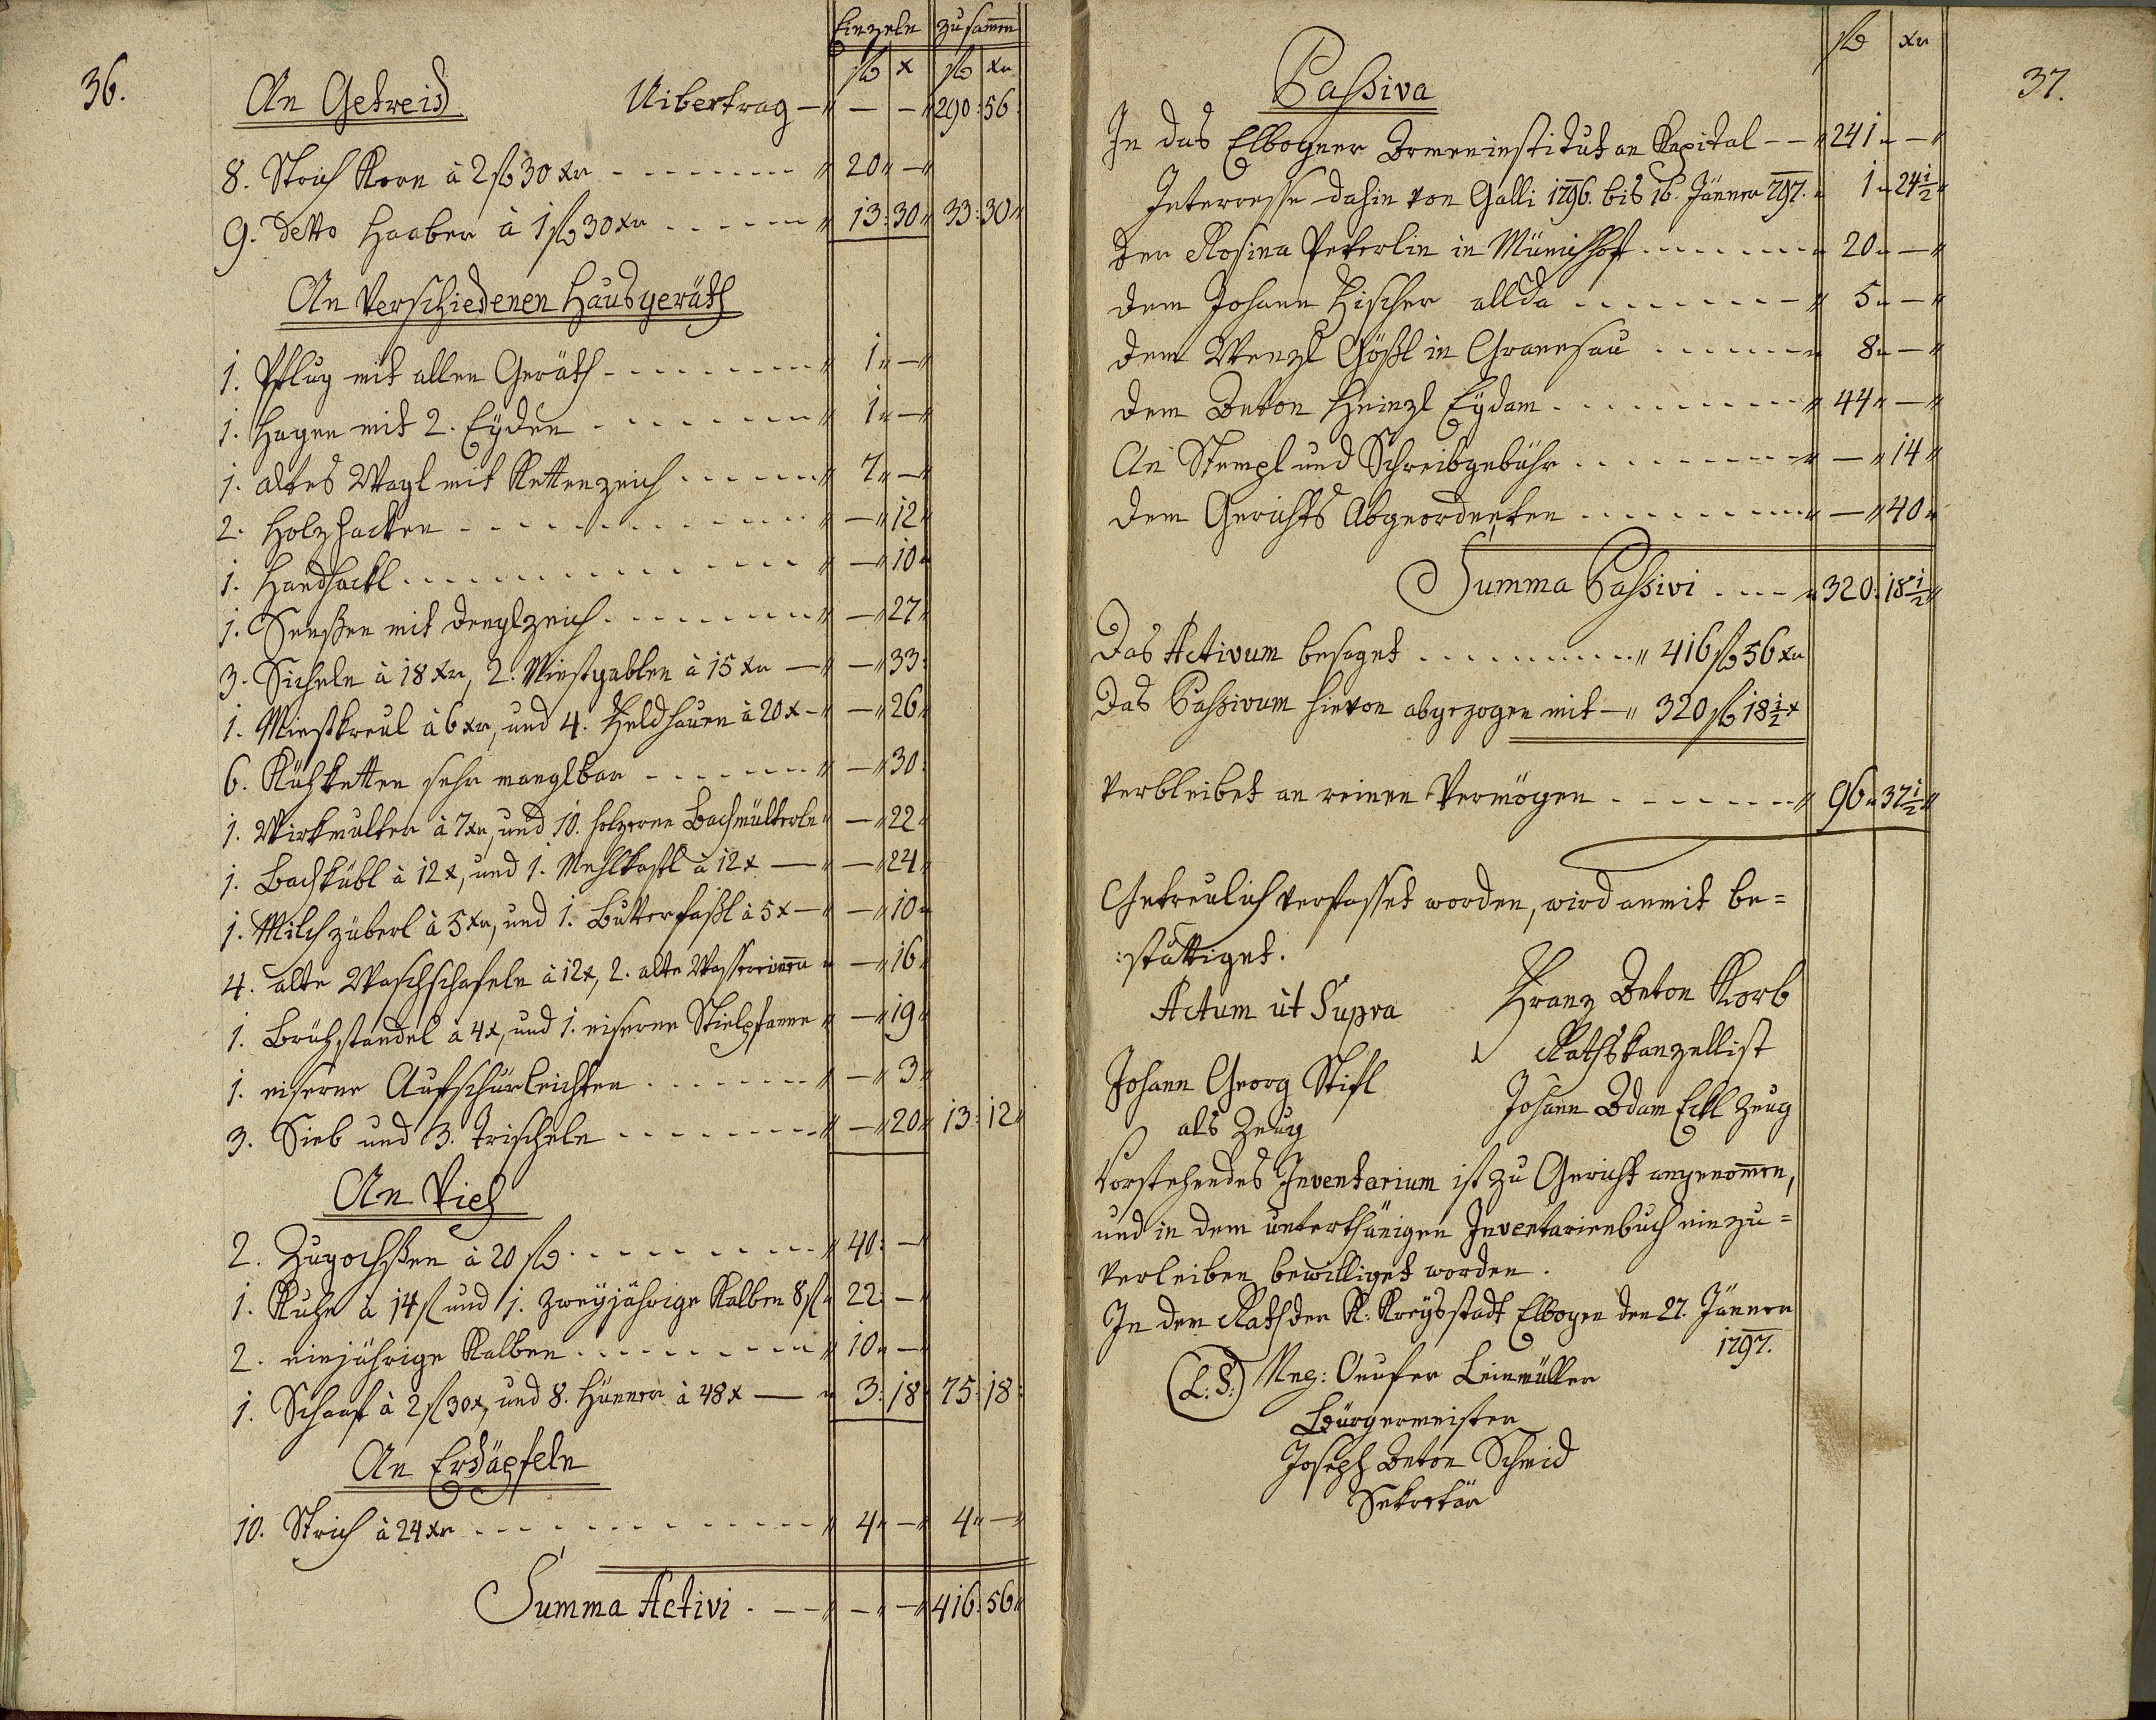 36.
Einzeln zusam̅en
fl x fl xr
An Getreid Uibertrag — „ — — „ 290: 56
8. Strich Korn à 2 fl 30 xr - - - - „ 20 „ — „
9. detto Haaber à 1 fl 30 xr - - - - „ 13: 30 „ 33: 30 „
An Verschiedenen Hausgeräth
1. Pflug mit allen Geräth - - - - „ 1 „ — „
1. Hagen mit 2. Eyden - - - - „ 1 „ — „
1. altes Wagl mit Kettenzeich - - - - „ 7 „ — „
2. Holzhacken - - - - „ — „ 12 „
1. Handhackl - - - - „ — „ 10 „
1. Senßen mit denglzeich - - - - „ — „ 27 „
3. Sicheln à 18 xr, 2. Miestgablen à 15 xr — „ — „ 33:
1. Miestkreul à 6 xr, und 4. Feldhauen à 20 x - „ — „ 26 „
6. Kühketten sehr manglbar - - - - „ — „ 30:
1. Wirkmulter à 7 xr, und 10. holzerne Bachmülterln „ — „ 22 „
1. Bachkübl à 12 x, und 1. Mehlkastl à 12 x — „ — „ 24 „
1. Milchzüberl à 5 xr, und 1. Butterfaßl à 5 x — „ — „ 10 „
4. alte Waschschafeln à 12 x, 2. alte Wassereim̅er „ — „ 16 „
1. Brühstandel à 4 x, und 1. eiserne Stielpfanne „ — „ 19 „
1. eiserne Aufschürleichten - - - - „ — „ 3 „
3. Sieb und 3. Trischeln - - - - „ — „ 20 „ 13: 12 „
An Vieh
2. Zugochßen à 20 fl - - - - „ 40: — „
1. Kuhe à 14 fl und 1. zweyjährige Kalben 8 fl „ 22: — „
2. einjährige Kalben - - - - „ 10 „ — „
1. Schaaf à 2 fl 30 x, und 8. Hünner à 48 x — „ 3: 18: 75: 18:
An Erdäpfeln
10. Strich à 24 xr - - - - „ 4 „ — „ 4 „ — „
Summa Activi - — — „ — „ — „ 416: 56 „
37.
fl xr
Passiva
In das Elbogner Armeninstitut an Kapital - - „ 241 „ — „
Interresse dahin von Galli 1796. bis 16. Jänner 797. „ 1 „ 24 1/2 „
der Rosina Peterlin in Münichhof - - - - „ 20 „ — „
dem Johann Fischer allda - - - - „ 5 „ — „
dem Wenzl Gößl in Granesau - - - - „ 8 „ — „
dem Anton Heinzl Eydam - - - - „ 44 „ — „
An Stempl und Schreibgebühr - - - - „ — „ 14 „
dem Gerichts Abgeordneten - - - - „ — „ 40 „
Summa Passivi - - - - „ 320: 18 1/2 „
Das Activum besaget - - - - „ 416 fl 56 xr
Das Passivum hievon abgezogen mit — „ 320 fl 18 1/2 x
verbleibet an reinen Vermögen - - - - „ 96 „ 37 1/2 „
Getreulich verfasset worden, wird anmit be=
:stättiget.
Actum ut Supra Franz Anton Korb
Rathskanzellist
Johann Georg Stifl Johann Adam Eckl Zeug
als Zeug
Vorstehendes Inventarium ist zu Gericht angenom̅en,
und in dem unterthänigen Inventarienbuch einzu=
verleiben bewilliget worden.
In dem Rath der K: Kreysstadt Elbogen den 27. Jänner
1797.
(L: S:) Leinmüller
Bürgermeister
Joseph Anton Schmid
Sekretär